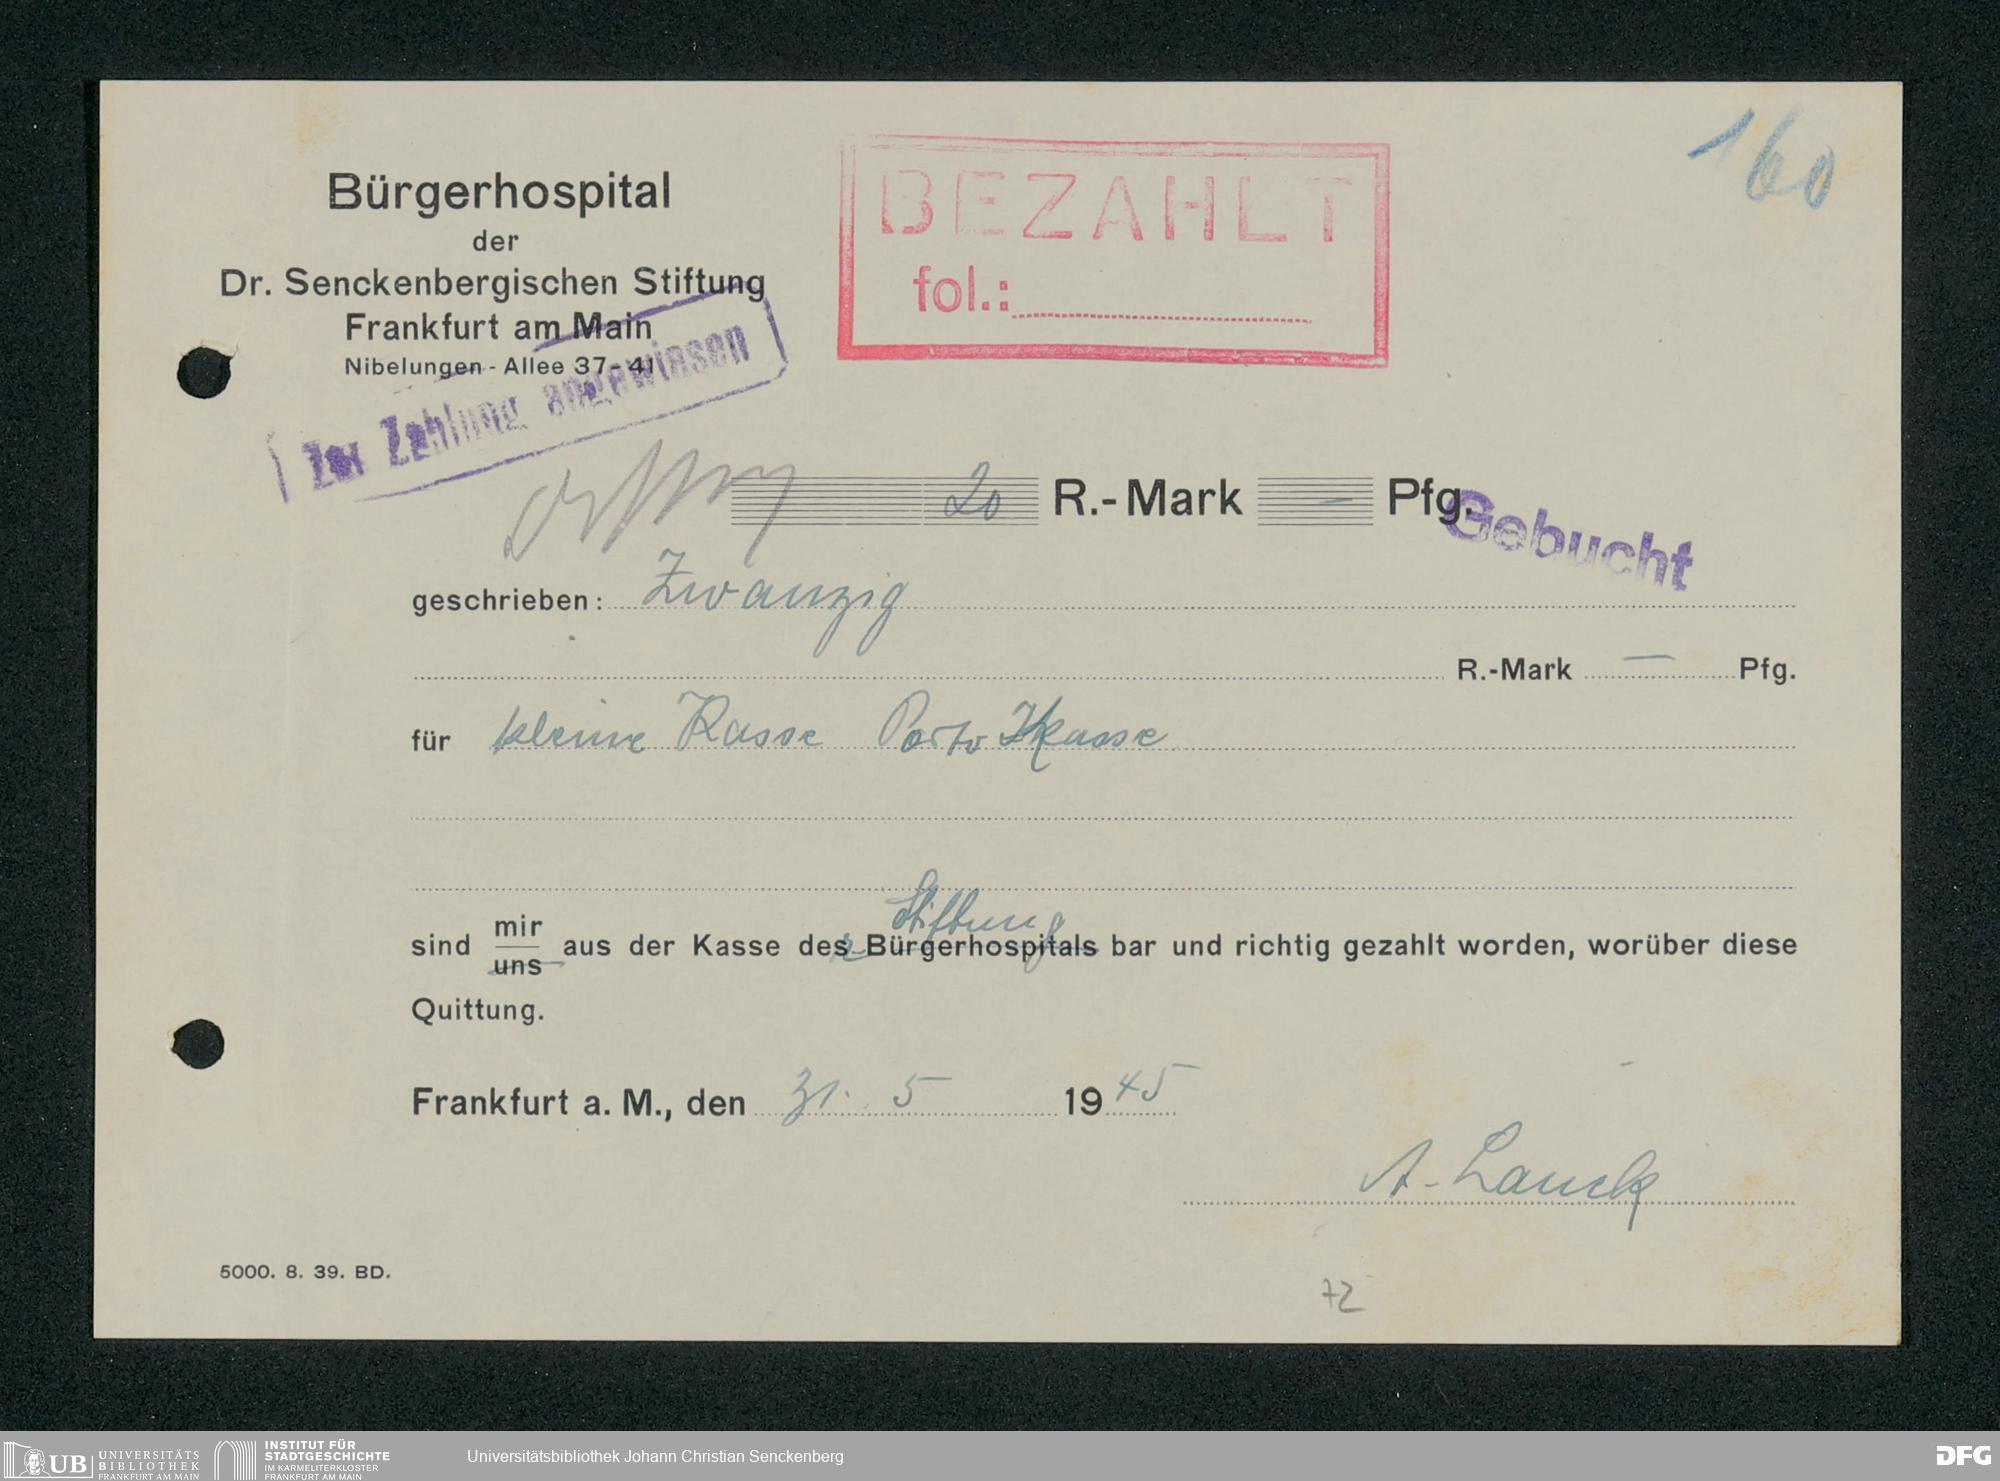 160
BEZAHLT
fol.:
Bürgerhospital
der
Dr. Senckenbergischen Stiftung
Frankfurt am Main
Nibelungen-Allee 37-41
Zur Zahlung angewiesen
20 R.-Mark — Pfg.
Gebucht
geschrieben: Zwanzig
R.-Mark — Pfg.
für kleine Kasse Porto Kasse
Stiftung
sind mir uns aus der Kasse des Bürgerhospitals bar und richtig gezahlt worden, worüber diese
Quittung.
Frankfurt a. M., den 31. 5 1945
A. Lauck
5000. 8. 39. BD.
72
UB UNIVERSITÄTS
BIBLIOTHEK
FRANKFURT AM MAIN
INSTITUT FÜR
STADTGESCHICHTE
IM KARMELITERKLOSTER
FRANKFURT AM MAIN
Universitätsbibliothek Johann Christian Senckenberg
DFG